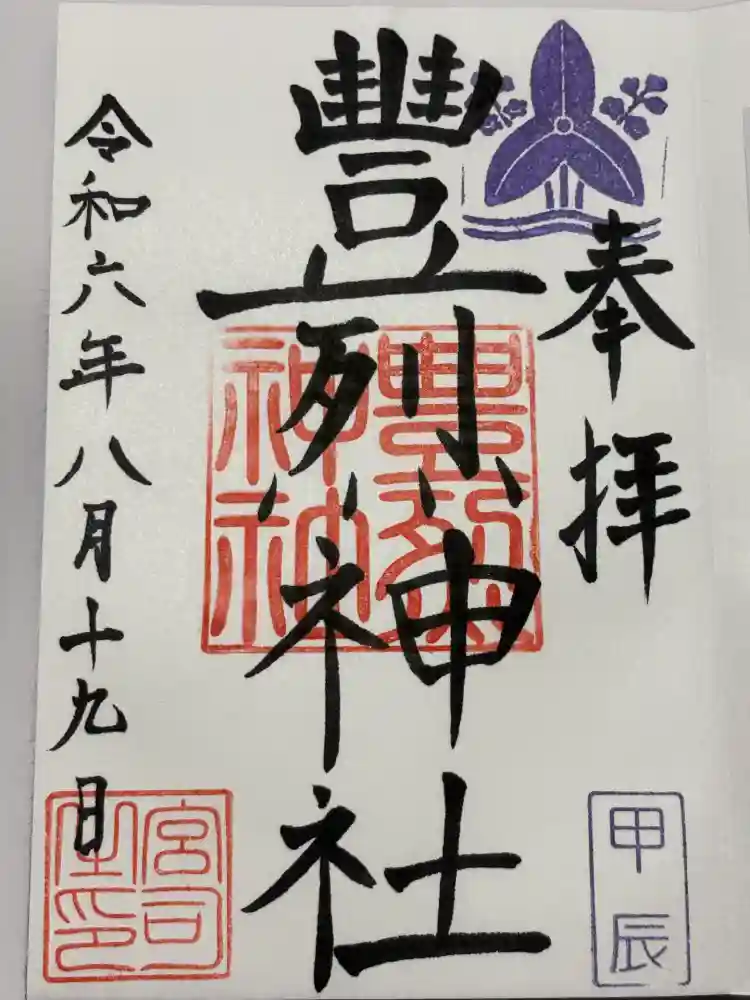 奉拝
豊烈神社
令和六年八月十九日
豊烈神社
宮司之印
甲辰